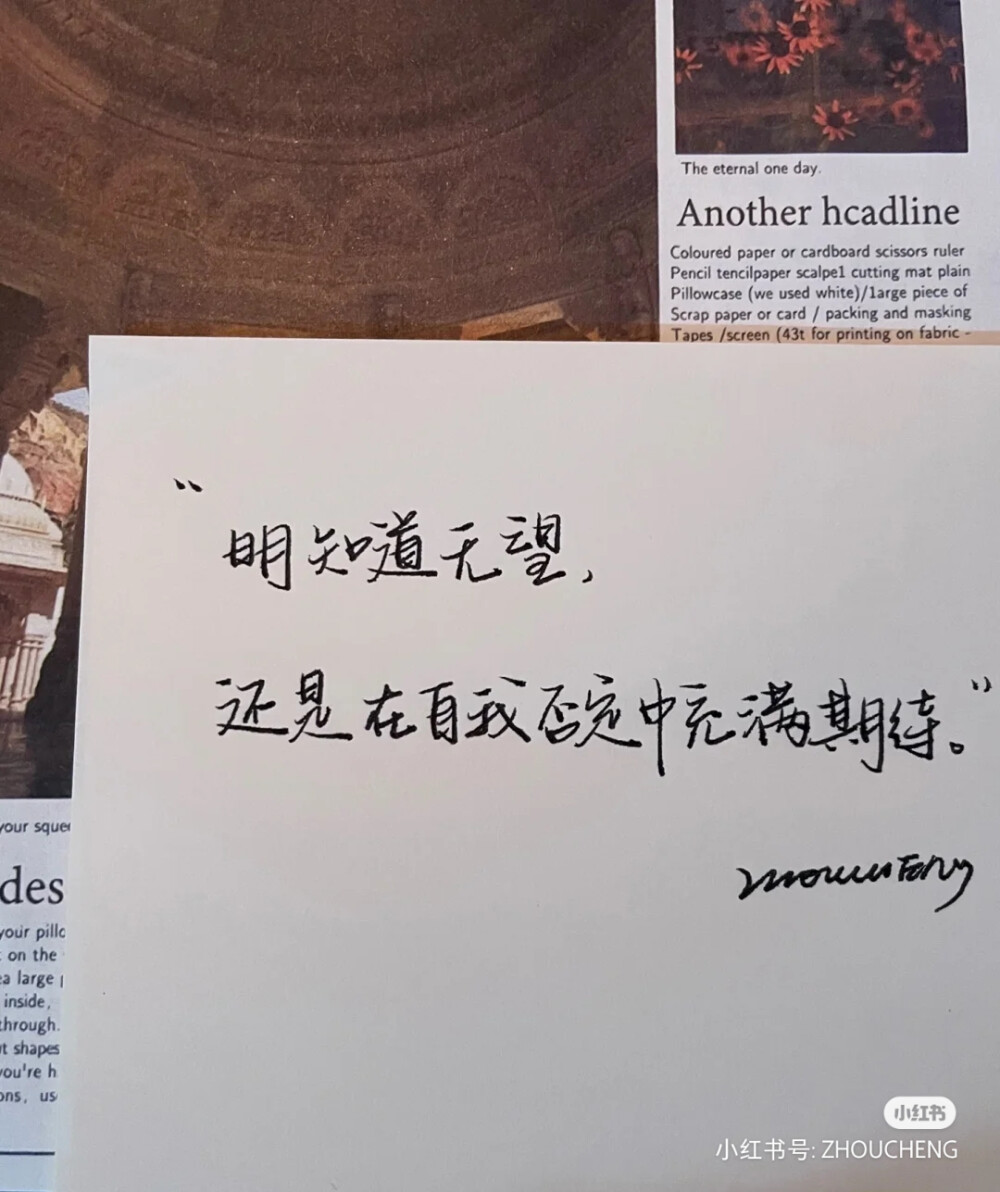 The eternal one day.
Another hcadline
Coloured paper or cardboard scissors ruler
Pencil tencilpaper scalpel cutting mat plain
Pillowcase (we used white)/large piece of
Scrap paper or card / packing and masking
Tapes /screen (43t for printing on fabric -
“明知道无望，
还是在自我否定中充满期待。”
your squee
des
your pillo
on the
ea large
inside,
through.
ut shapes
you're h
ons, us
小红书
小红书号: ZHOUCHENG